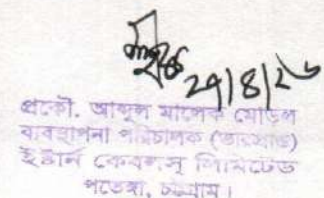 ২৭/৪/২৬
প্রকৌ. আব্দুল মালেক মোড়ল
ব্যবস্থাপনা পরিচালক (ভারপ্রাপ্ত)
ইষ্টার্ন কেবলস্ লিমিটেড
পতেঙ্গা, চট্টগ্রাম।